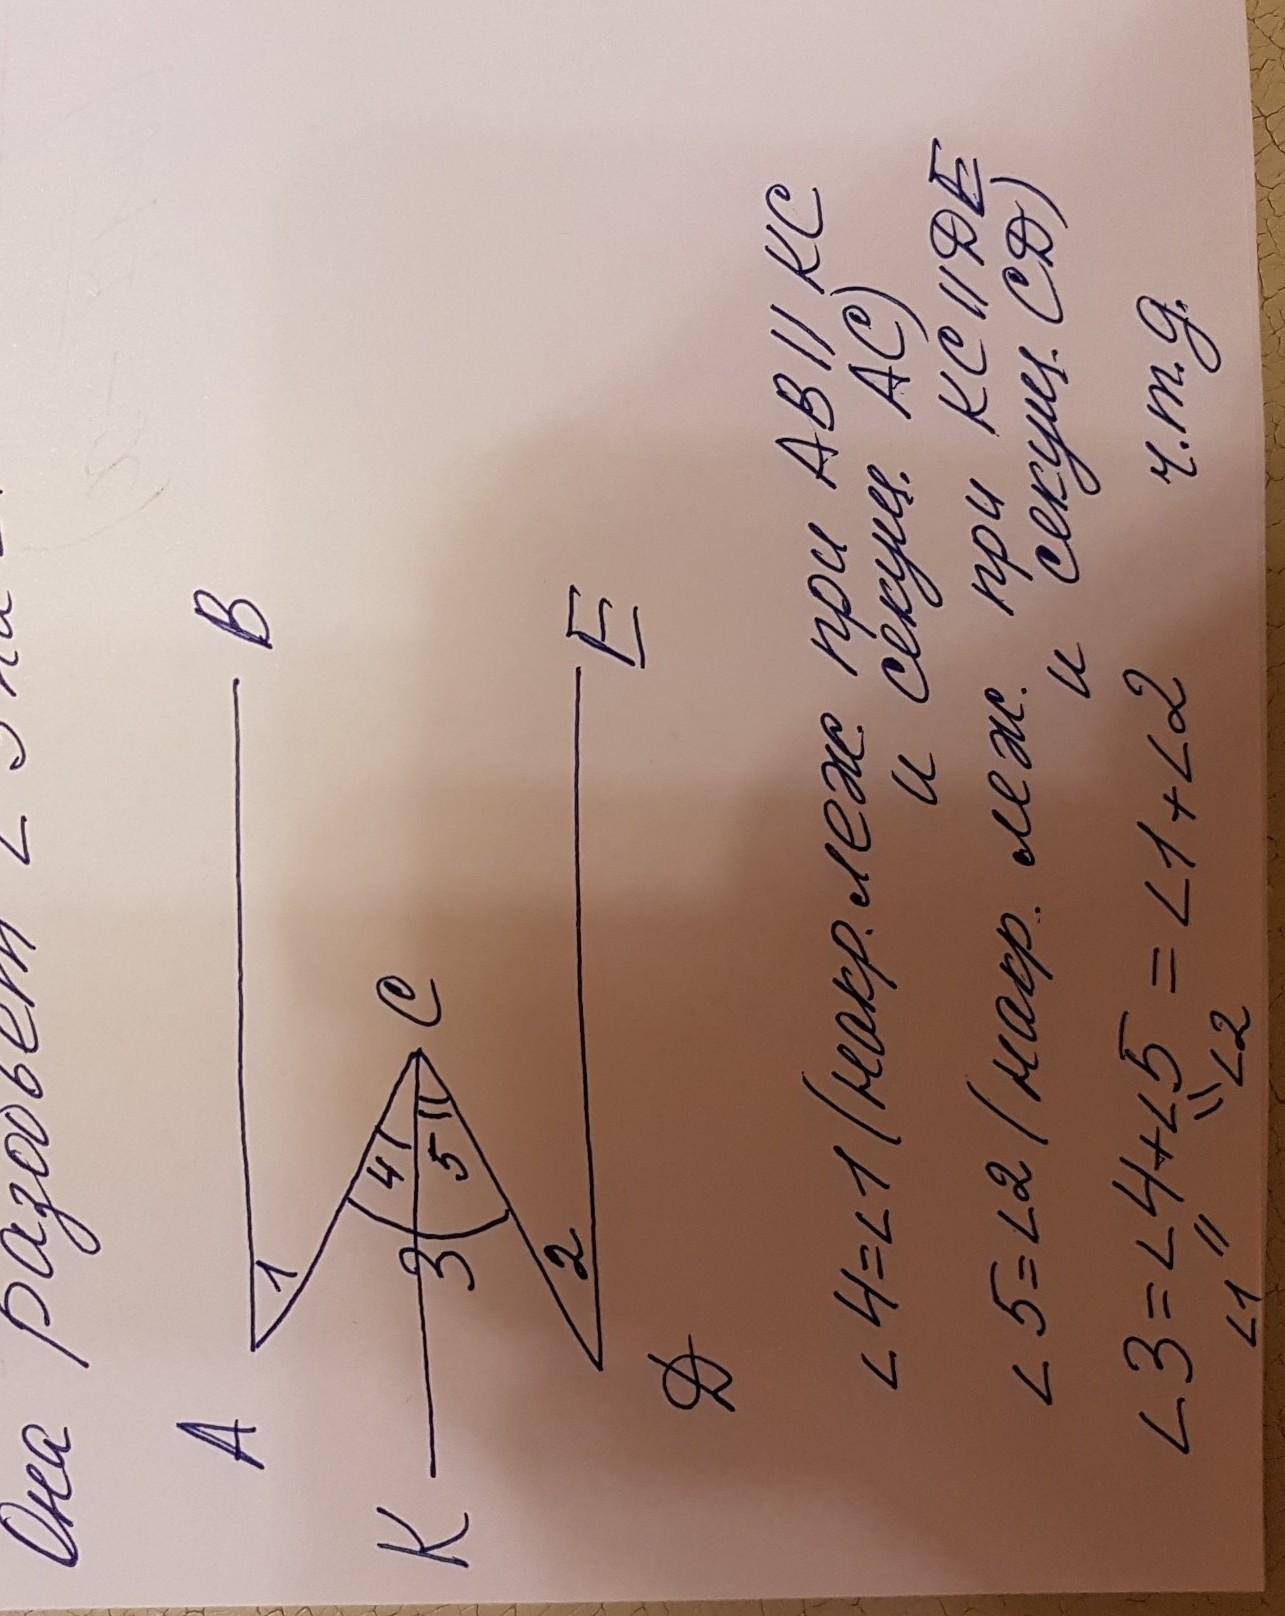 Она разобьет ∠3 на
A B
1
K 3 4 5 C
2
Д E
∠4=∠1 (накр. леж. при AB || KC
и секущ. AC)
∠5=∠2 (накр. леж. при KC || ДE
и секущ. CД)
∠3=∠4+∠5=∠1+∠2 ч.т.д.
∠1 ∠2